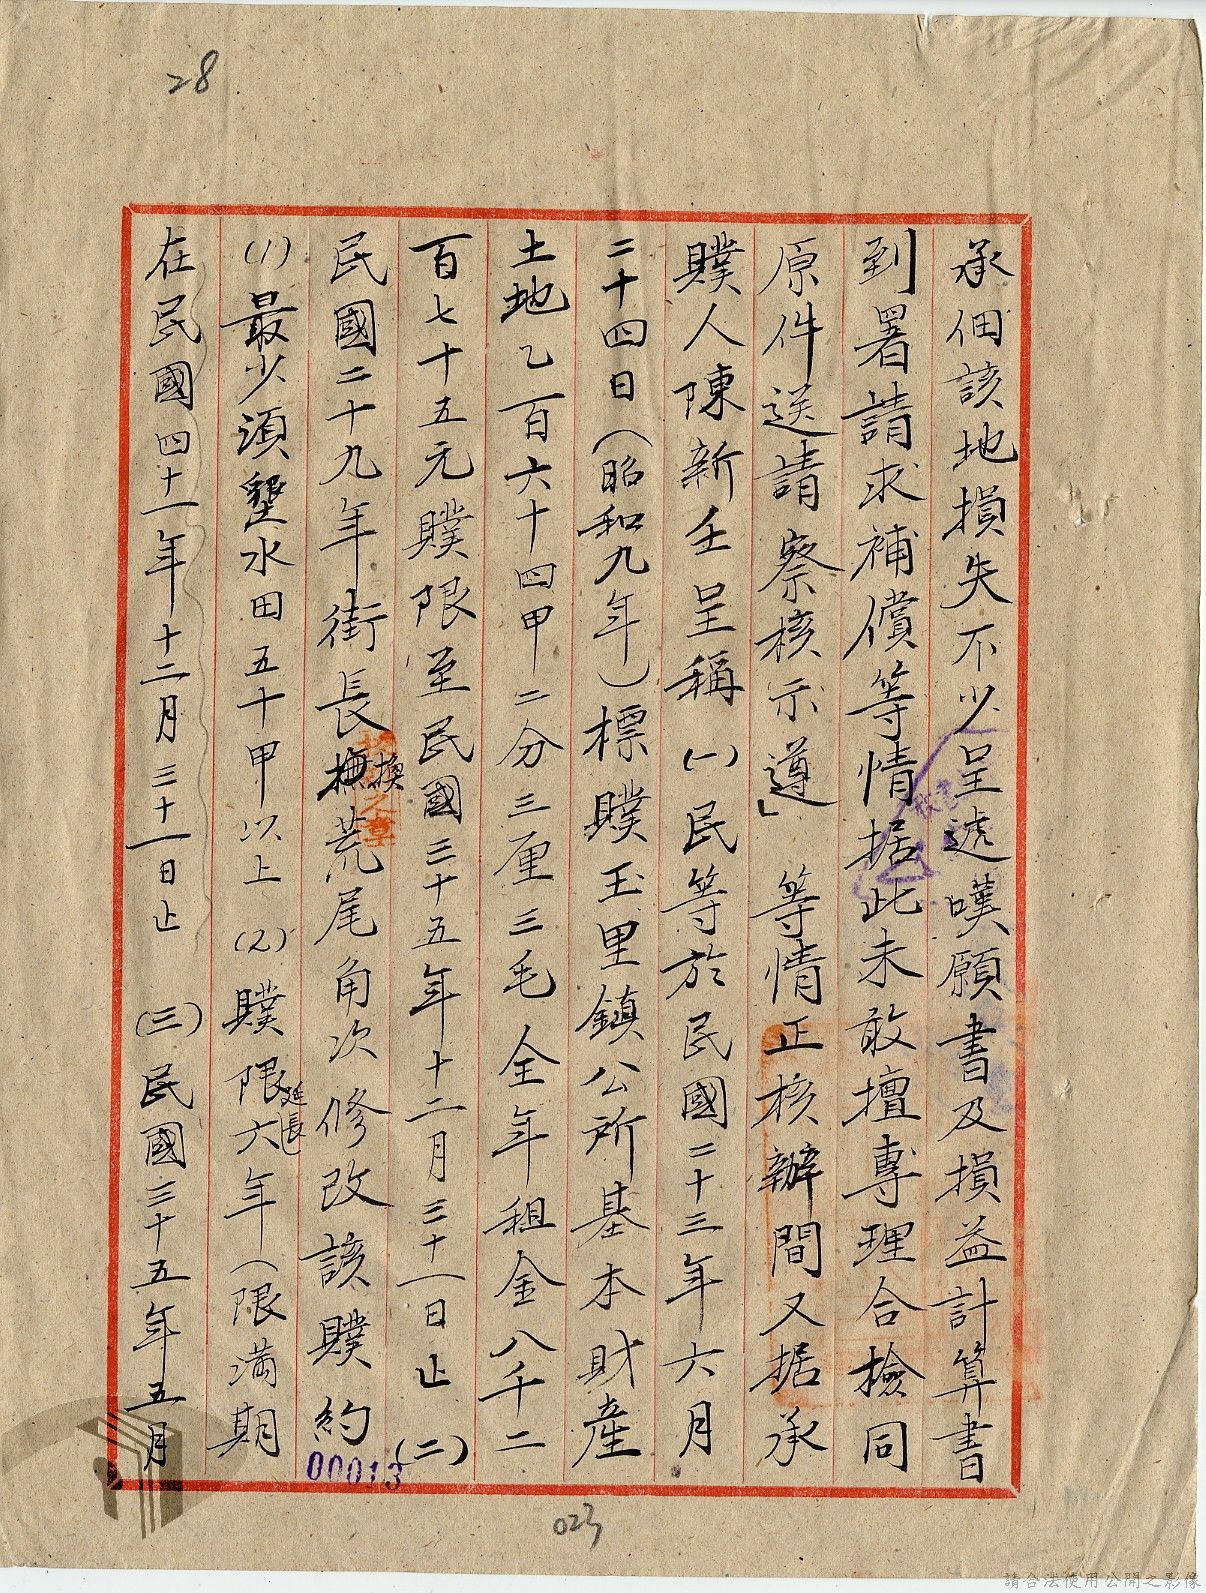 28
承佃該地損失不少呈遞嘆願書及損益計算書
到署請求補償等情据此未敢擅專理合檢同
原件送請察核示遵」等情正核辦間又据承
贌人陳新壬呈稱(一)民等於民國二十三年六月
二十四日(昭和九年)標贌玉里鎮公所基本財產
土地乙百六十四甲二分三厘三毛全年租金八千二
百七十五元贌限至民國三十五年十二月三十一日止(二)
民國二十九年街長換荒尾角次修改該贌約
(1)最少須墾水田五十甲以上(2)贌限延長六年(限滿期
在民國四十一年十二月三十一日止(三)民國三十五年五月
00013
023
請合法使用公開之影像